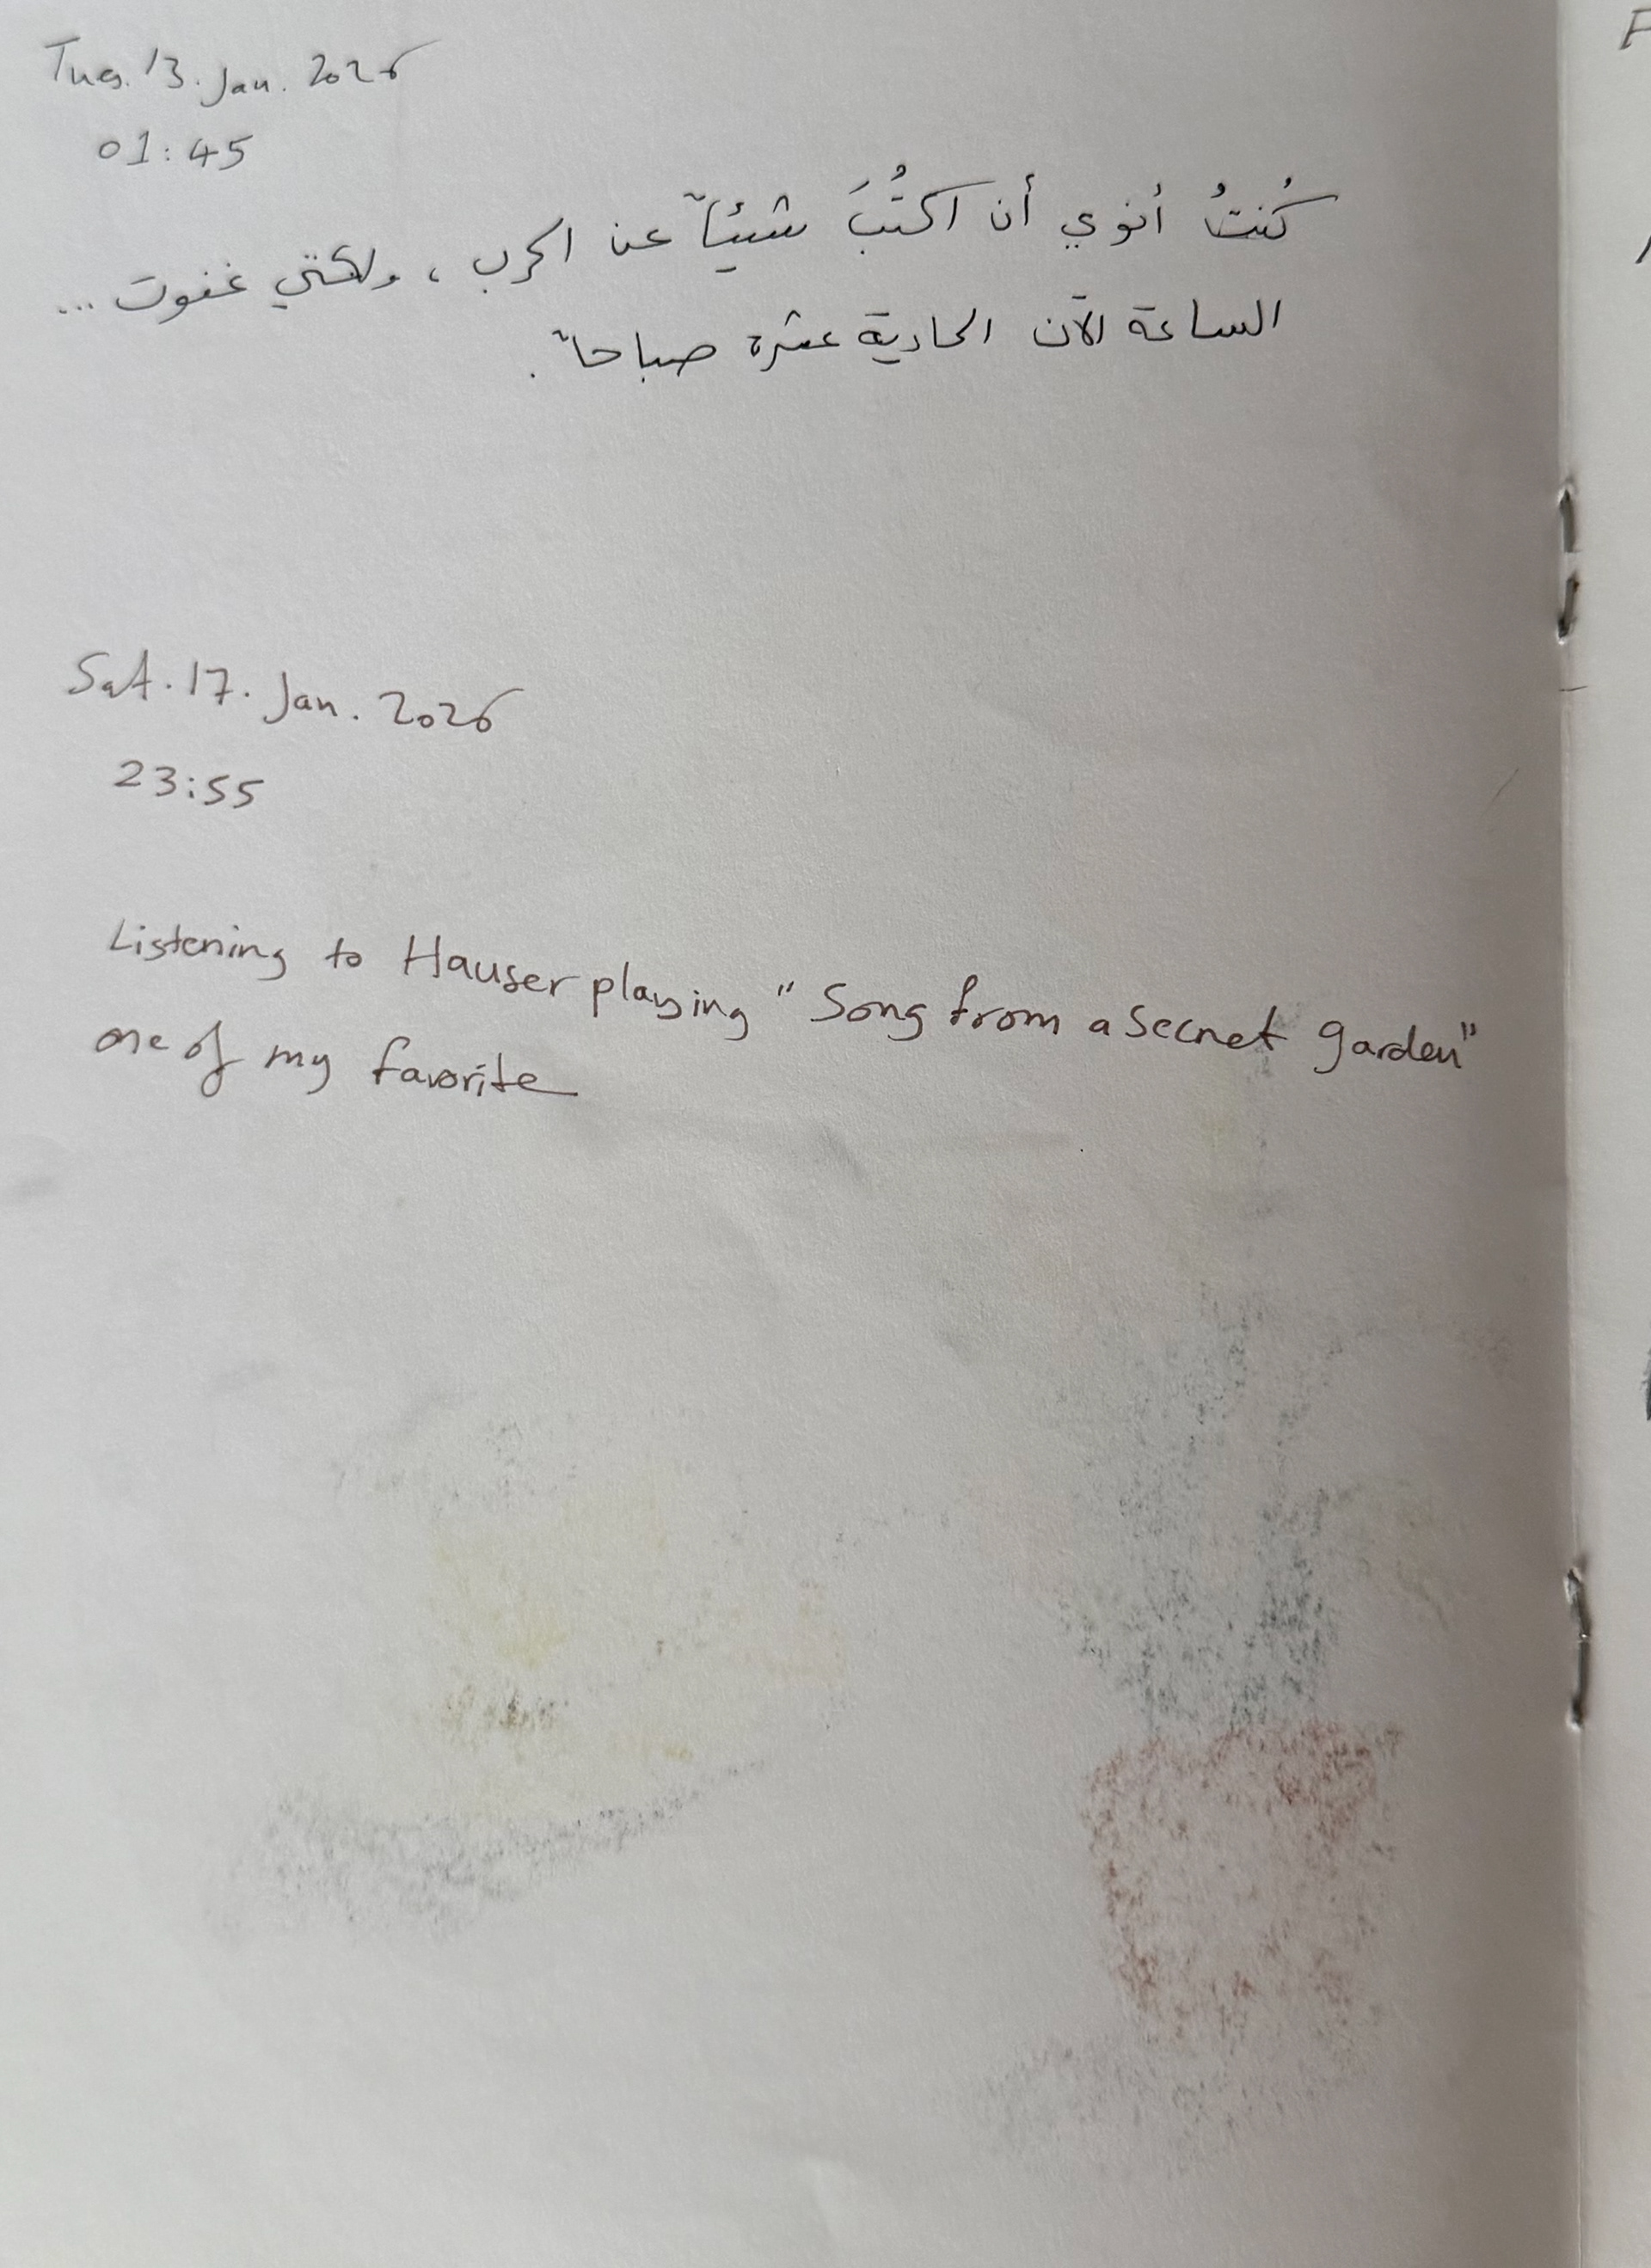 Tues. 13. Jan. 2026
01:45
كُنتُ أنوي أن اكتُبَ شيئاً عن الحرب، ولكني غفوت ...
الساعة الآن الحادية عشرة صباحاً.
Sat. 17. Jan. 2026
23:55
Listening to Hauser playing "Song from a secret garden"
one of my favorite